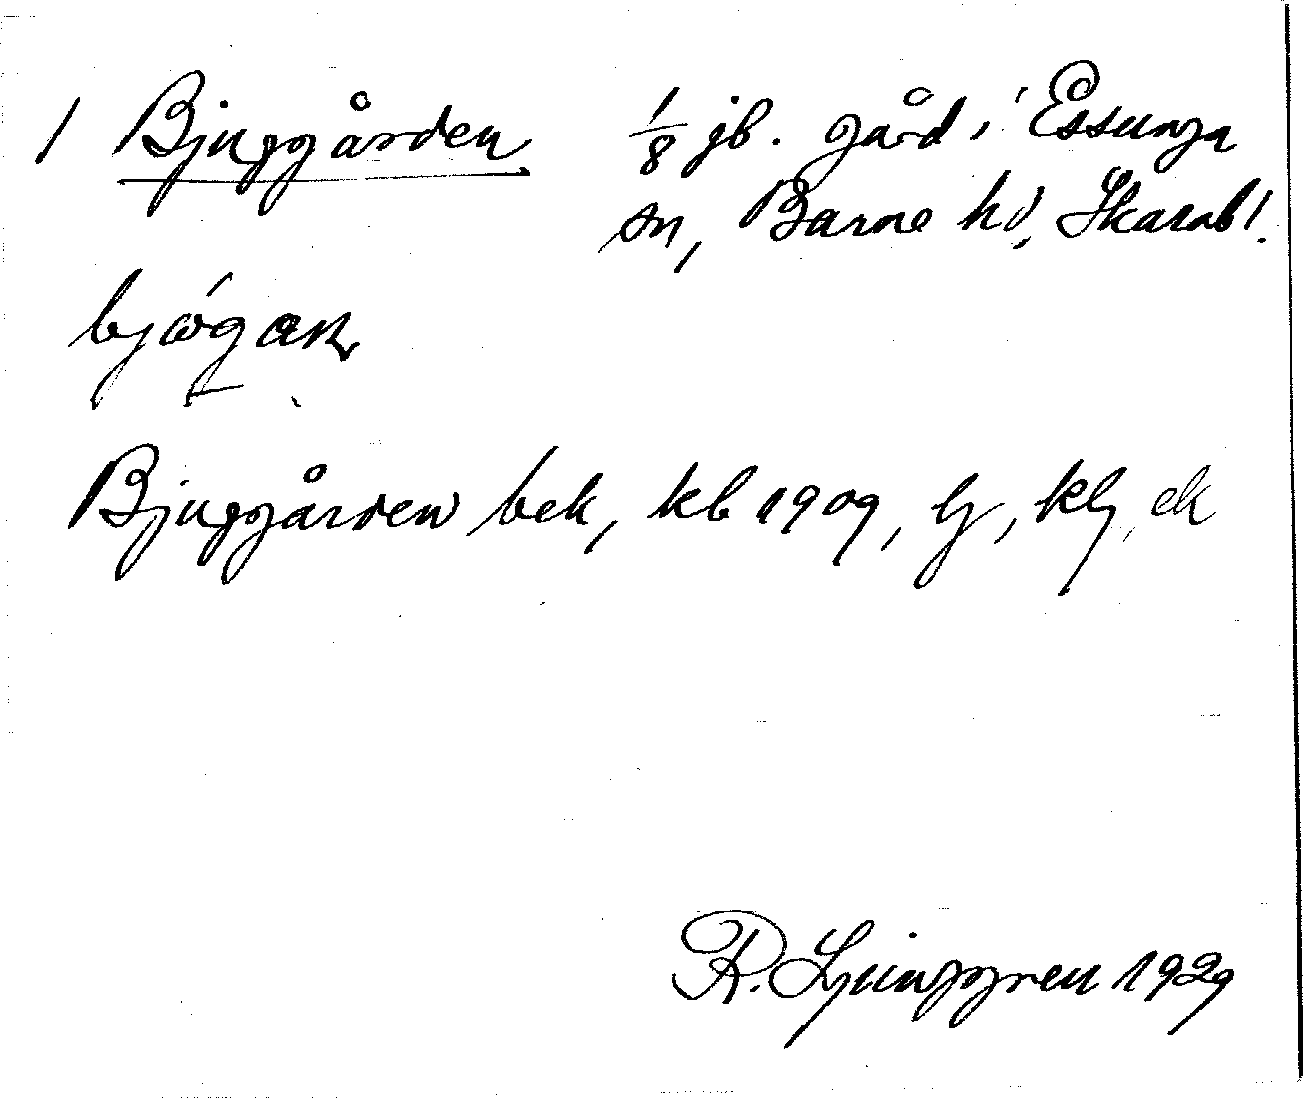 1 Bjuggården 1/8 jb. gård i Essunga
sn, Barne hd, Skarabl.
Bjuggården bek, kb 1909, lj, klj, ek
R. Ljunggren 1929